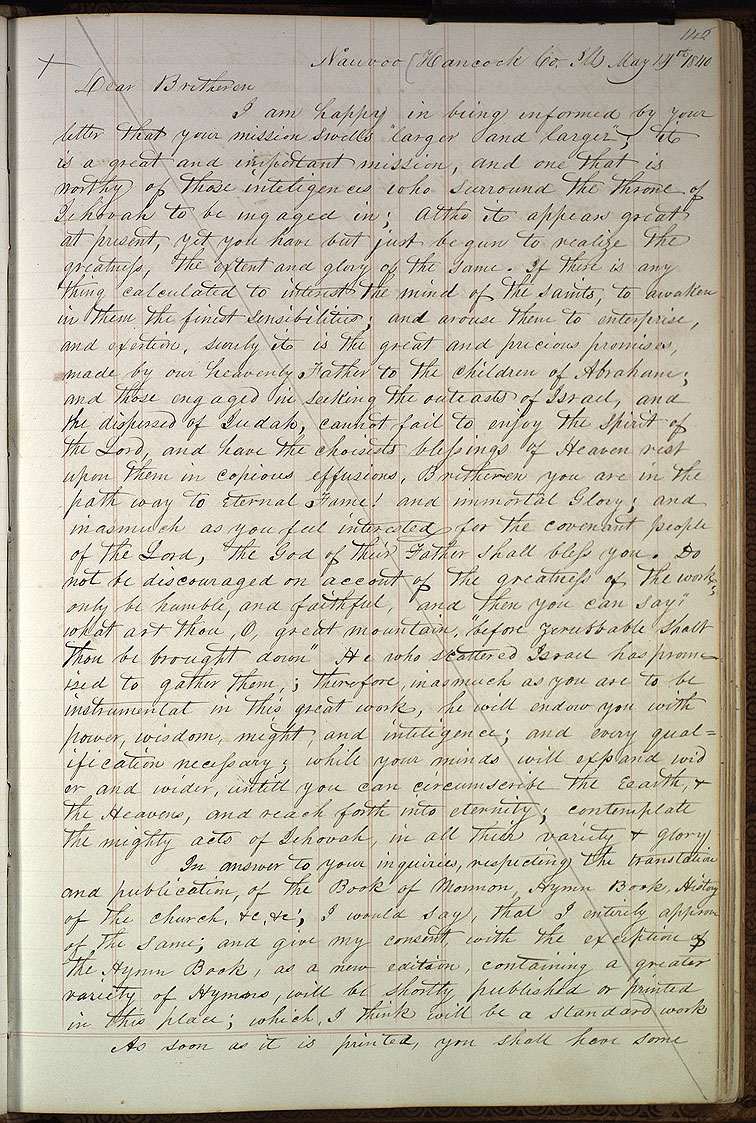 142
+ Nauvoo (Hancock Co. Ill May 14th 1840
Dear Bretheren
I am happy in being informed by your
letter that your mission swells "larger and larger", it
is a great and important mission, and one that is
worthy of those inteligences who surround the throne of
Jehovah to be ingaged in; Altho it appears great
at present, yet you have but just begun to realize the
greatness, the extent and glory of the same. If there is any
thing calculated to interest the mind of the saints, to awaken
in them the finest sensibilities; and arouse them to enterprise,
and exertion, surely it is the great and precious promises,
made by our heavenly Father to the children of Abraham;
and those engaged in seeking the outcasts of Israel, and
the dispersed of Judah, cannot fail to enjoy the Spirit of
the Lord, and have the choisests blessings of Heaven rest
upon them in copious effusions, Bretheren you are in the
path way to Eternal Fame! and immortal Glory; and
inasmuch as you feel interested for the covenant people
of the Lord, the God of their Father shall bless you. Do
not be discouraged on account of the greatness of the work;
only be humble, and faithful, and then you can say"
what art thou, O, great mountain, "before Zerubbable shalt
thou be brought down" He who scattered Israel has prom-
ised to gather them,; therefore, inasmuch as you are to be
instrumental in this great work, he will endow you with
power, wisdom, might, and inteligence; and every qual=
ification necessary; while your minds will expand wid
er and wider, untill you can circumscribe the Earth, &
the Heavens, and reach forth into eternity; contemplate
the mighty acts of Jehovah, in all their variety & glory
In answer to your inquiries, respecting the translation
and publication, of the Book of Mormon, Hymn Book, History
of the church, &c, &c', I would say, that I entirely approve
of the same, and give my consent, with the exception of
the Hymn Book, as a new edition, containing a greater
variety of Hymns, will be shortly published or printed
in this place; which, I think will be a standard work
As soon as it is printed, you shall have some